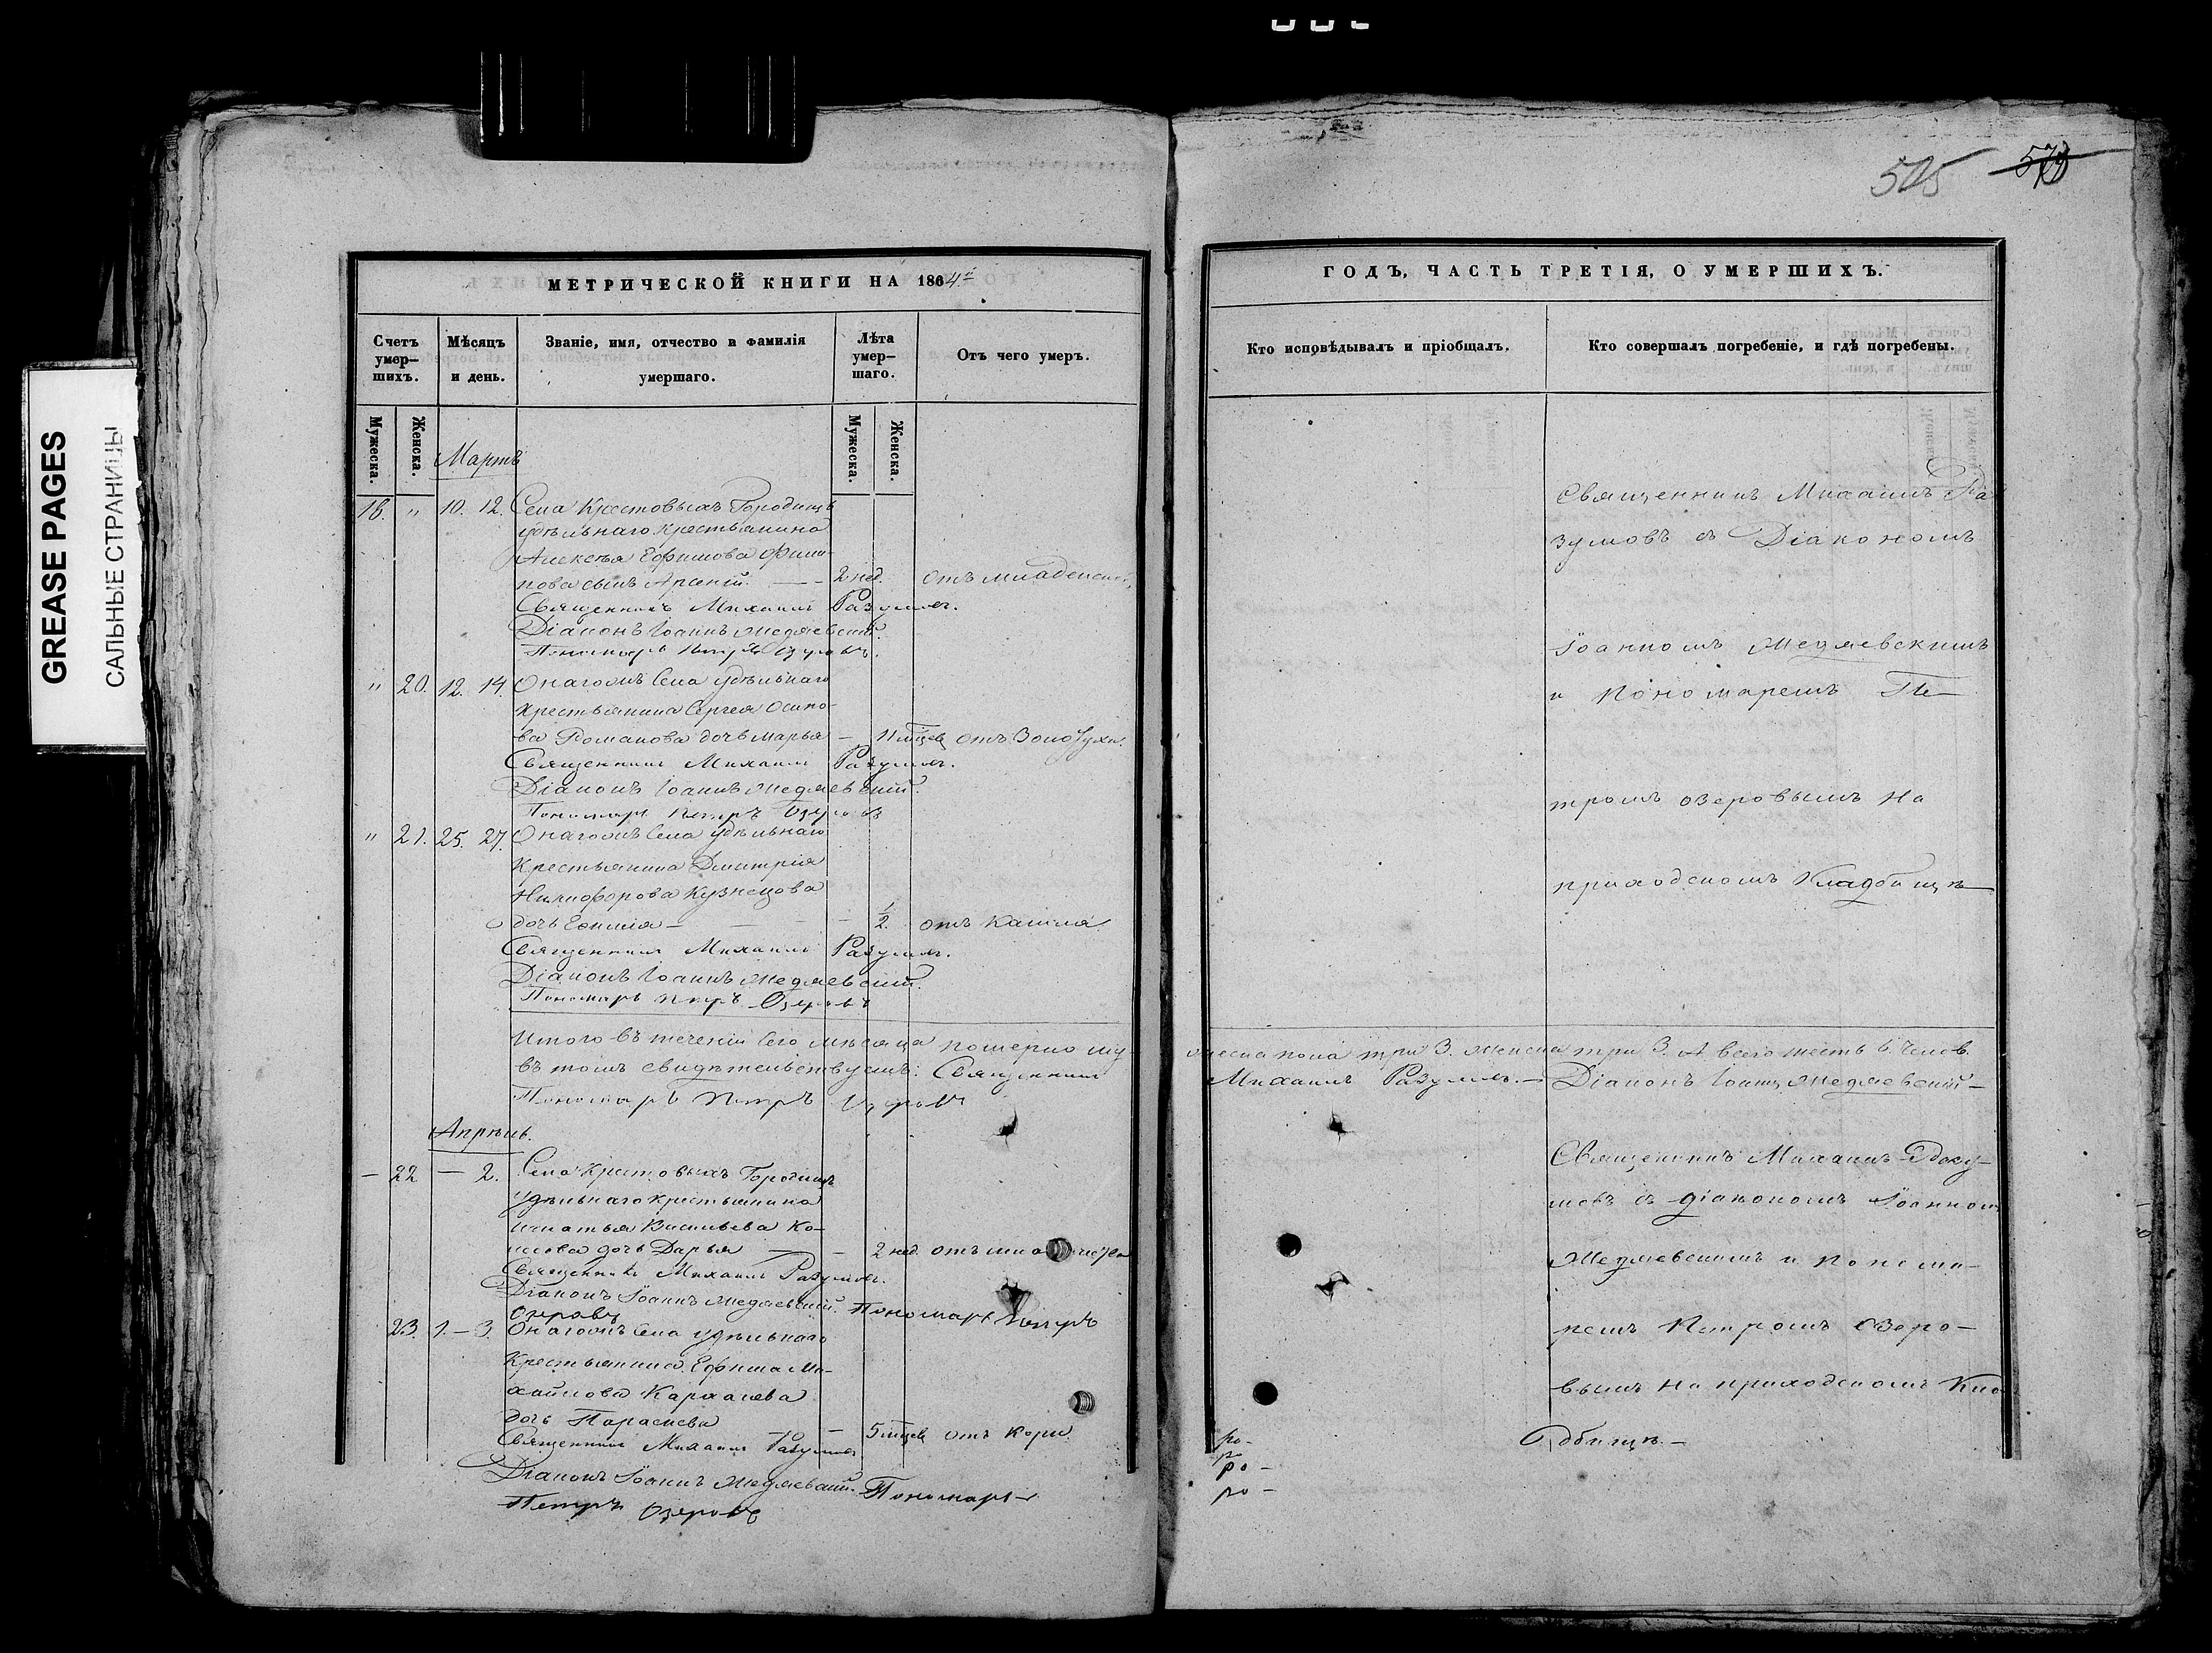 505 573
GREASE PAGES
САЛЬНЫЕ СТРАНИЦЫ
МЕТРИЧЕСКОЙ КНИГИ НА 1864й
Счетъ умер-шихъ.
Мѣсяцъ и день.
Званіе, имя, отчество и фамилія умершаго.
Лѣта умер-шаго.
Отъ чего умеръ.
Мужеска.
Женска.
Мужеска.
Женска.
Мартъ
16. " 10. 12. Села Крестовыхъ Городищъ
удѣльнаго крестьянина
Алексѣя Ефимова Фили-
пова сынъ Арсеній — 2 нед. отъ младенческ.
Священникъ Михаилъ Разумовъ.
Діаконъ Іоаннъ Медяевскій.
Пономарь Петръ Озеровъ.
" 20. 12. 14. Онагожъ Села удѣльнаго
крестьянина Сергея Осипо-
ва Романова дочь Марья — 11 мѣсец отъ Золотухи.
Священникъ Михаилъ Разумовъ.
Діаконъ Іоаннъ Медяевскій.
Пономарь Петръ Озеровъ
" 21. 25. 27. Онагожъ Села удѣльнаго
Крестьянина Дмитрія
Никифорова Кузнецова
дочь — — 1/2. отъ кашля
Священникъ Михаилъ Разумовъ.
Діаконъ Іоаннъ Медяевскій.
Пономарь Петръ Озеровъ
Итого въ теченіи сего мѣсяца померло му-
въ томъ свидѣтельствуемъ: Священникъ
Пономарь Петръ Озеровъ
Апрѣль.
— 22 — 2. Села Крестовыхъ Городищъ
удѣльнаго крестьянина
Игнатья Васильева Ко-
лова дочь Дарья — — 2 нед. отъ
Священникъ Михаилъ Разумовъ.
Діаконъ Іоаннъ Медяевскій. Пономарь Петръ
Озеровъ
23. 1. — 3. Онагожъ Села удѣльнаго
Крестьянина Ефима Ми-
хайлова
дочь Параскева — 5 мѣсец отъ кори.
Священникъ Михаилъ Разумовъ
Діаконъ Іоаннъ Медяевскій. Пономарь
Петръ Озеровъ
ГОДЪ, ЧАСТЬ ТРЕТІЯ, О УМЕРШИХЪ.
Кто исповѣдывалъ и пріобщалъ.
Кто совершалъ погребеніе, и гдѣ погребены.
Священникъ Михаилъ Ра
зумовъ съ Діакономъ
Іоанномъ Медяевскимъ
и Пономаремъ Пе-
тромъ Озеровымъ на
приходскомъ Кладбищѣ
жеска пола три 3. женска три 3. А всего шесть 6. Челов.
Михаилъ Разумовъ. — Діаконъ Іоаннъ Медяевскій —
Священникъ Михаилъ Разу-
мовъ съ діакономъ Іоанном
Медяевскимъ и понома-
ремъ Петромъ Озеро-
вымъ на приходскомъ Кла
дбищѣ. —
ро-
ро-
ро-